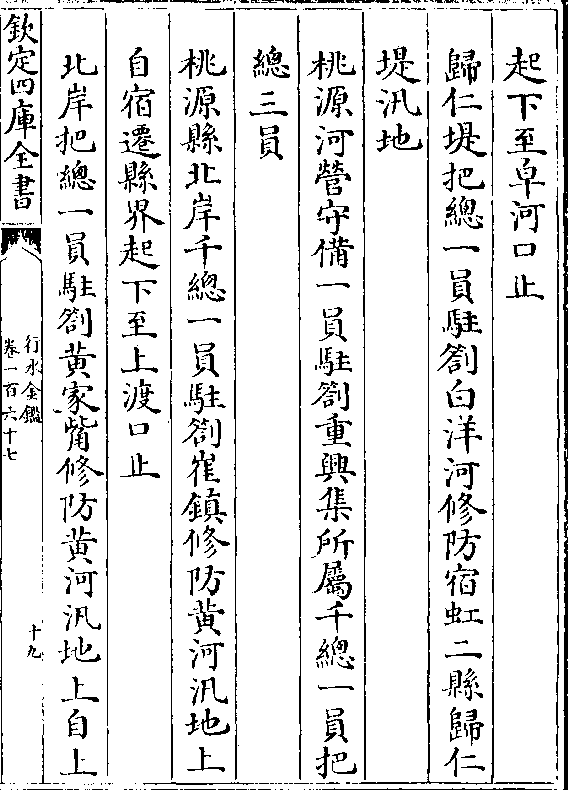 起下至卓河口止
歸仁堤把總一員駐劄白洋河修防宿虹二縣歸仁
堤汛地
桃源河營守備一員駐劄重興集所屬千總一員把
總三員
桃源縣北岸千總一員駐劄崔鎮修防黃河汛地上
自宿遷縣界起下至上渡口止
北岸把總一員駐劄黃家嘴修防黃河汛地上自上
欽定四庫全書
行水金鑑
卷一百六十七
十九